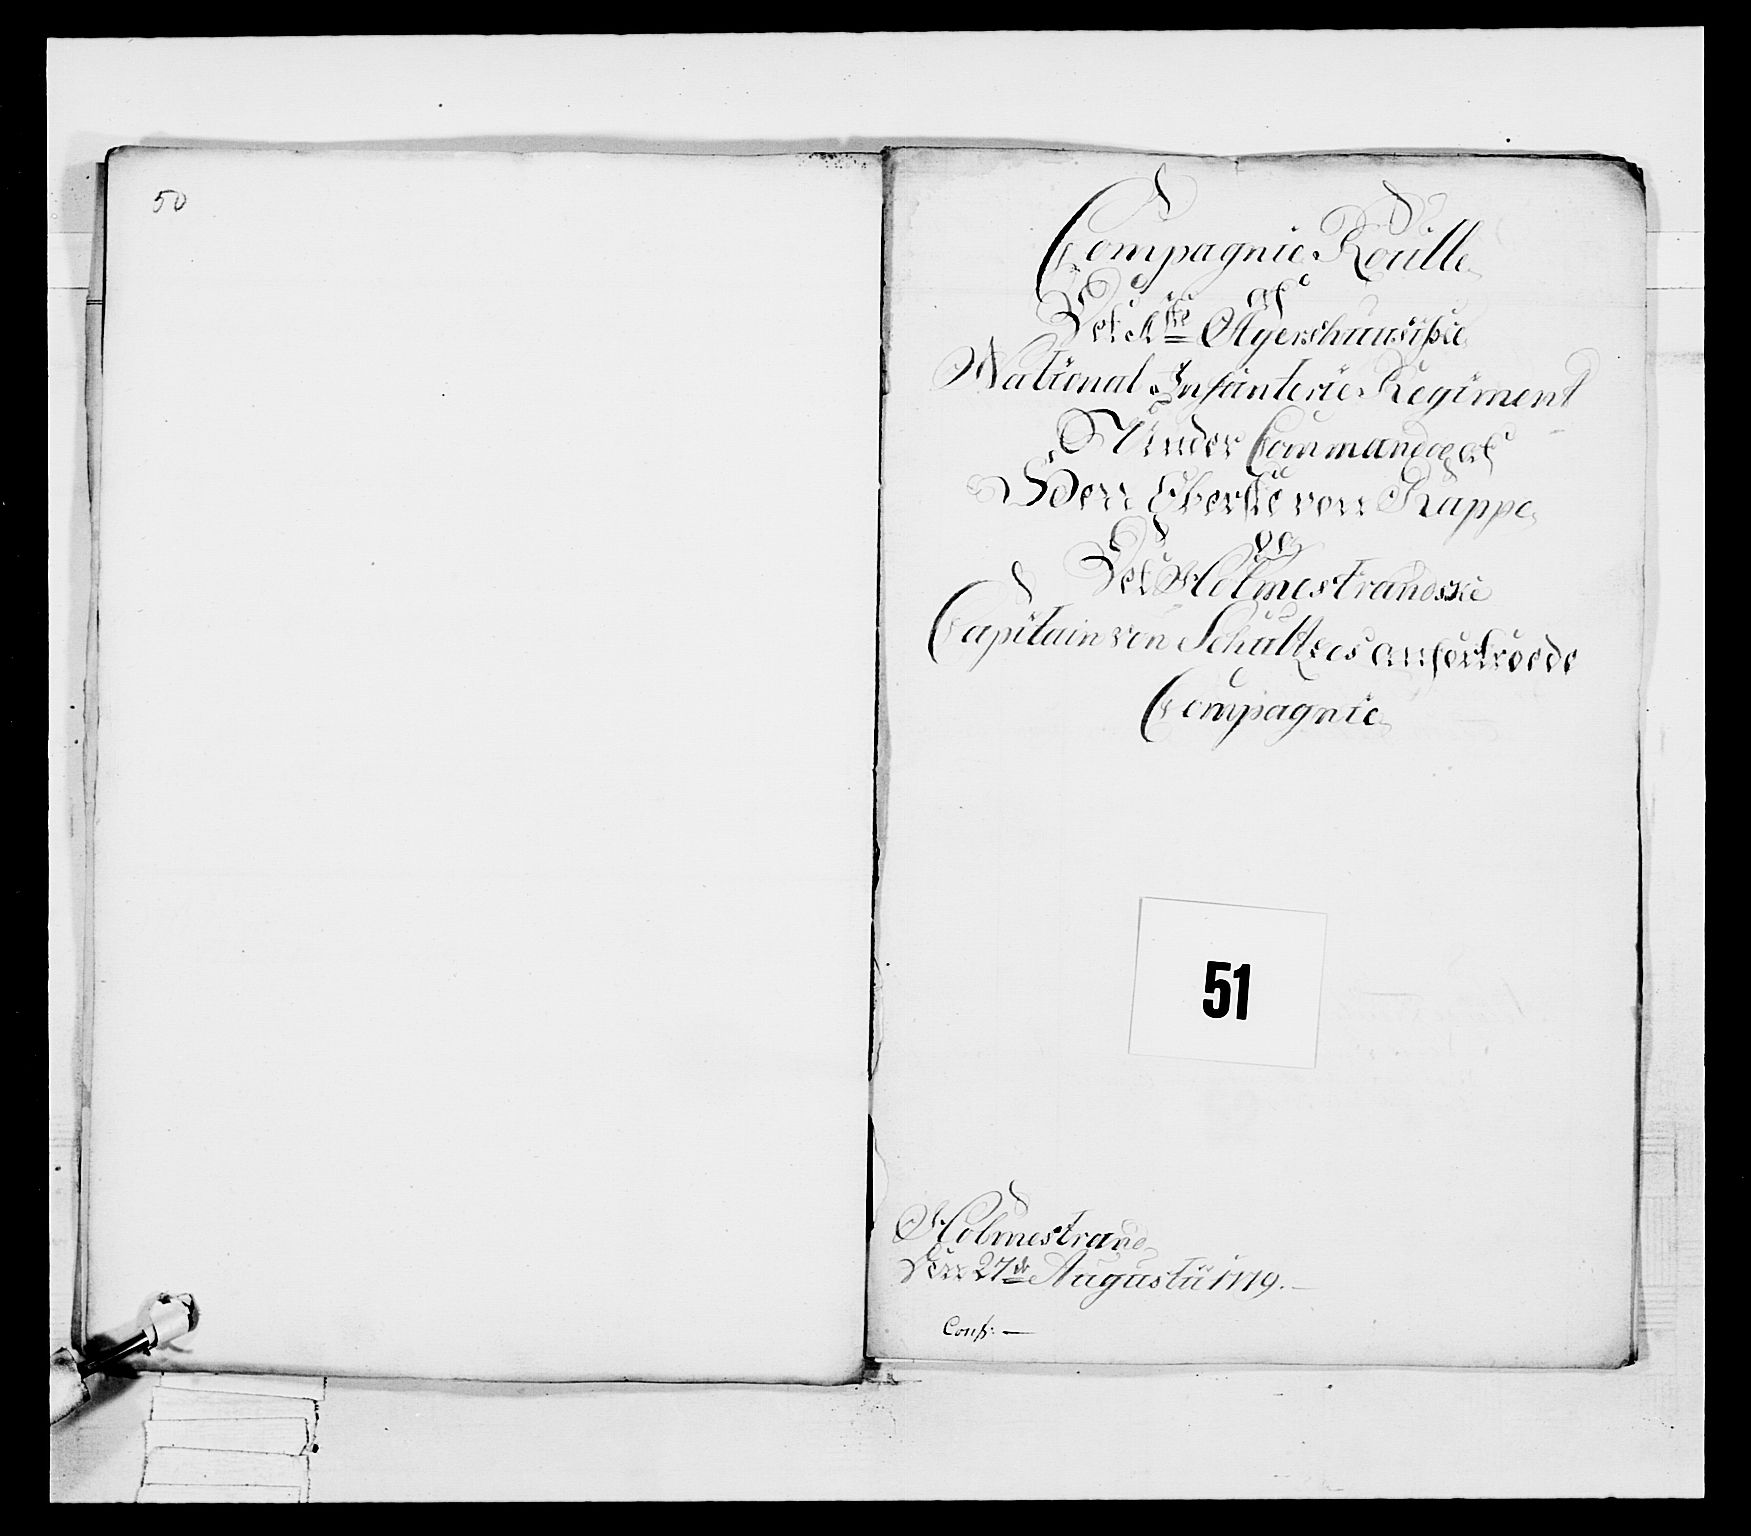 50
Compagnie Roulle
af
Det 1ste Agershuusiske
National Infanterie Regiment
Under Commando af
Herr Oberste von Kappe
og
Det Holmestrandske
Capitain von Schultzes anfortroede
Compagnie
51
Holmestrand
Den 27de Augustii 1779.
Conf: —